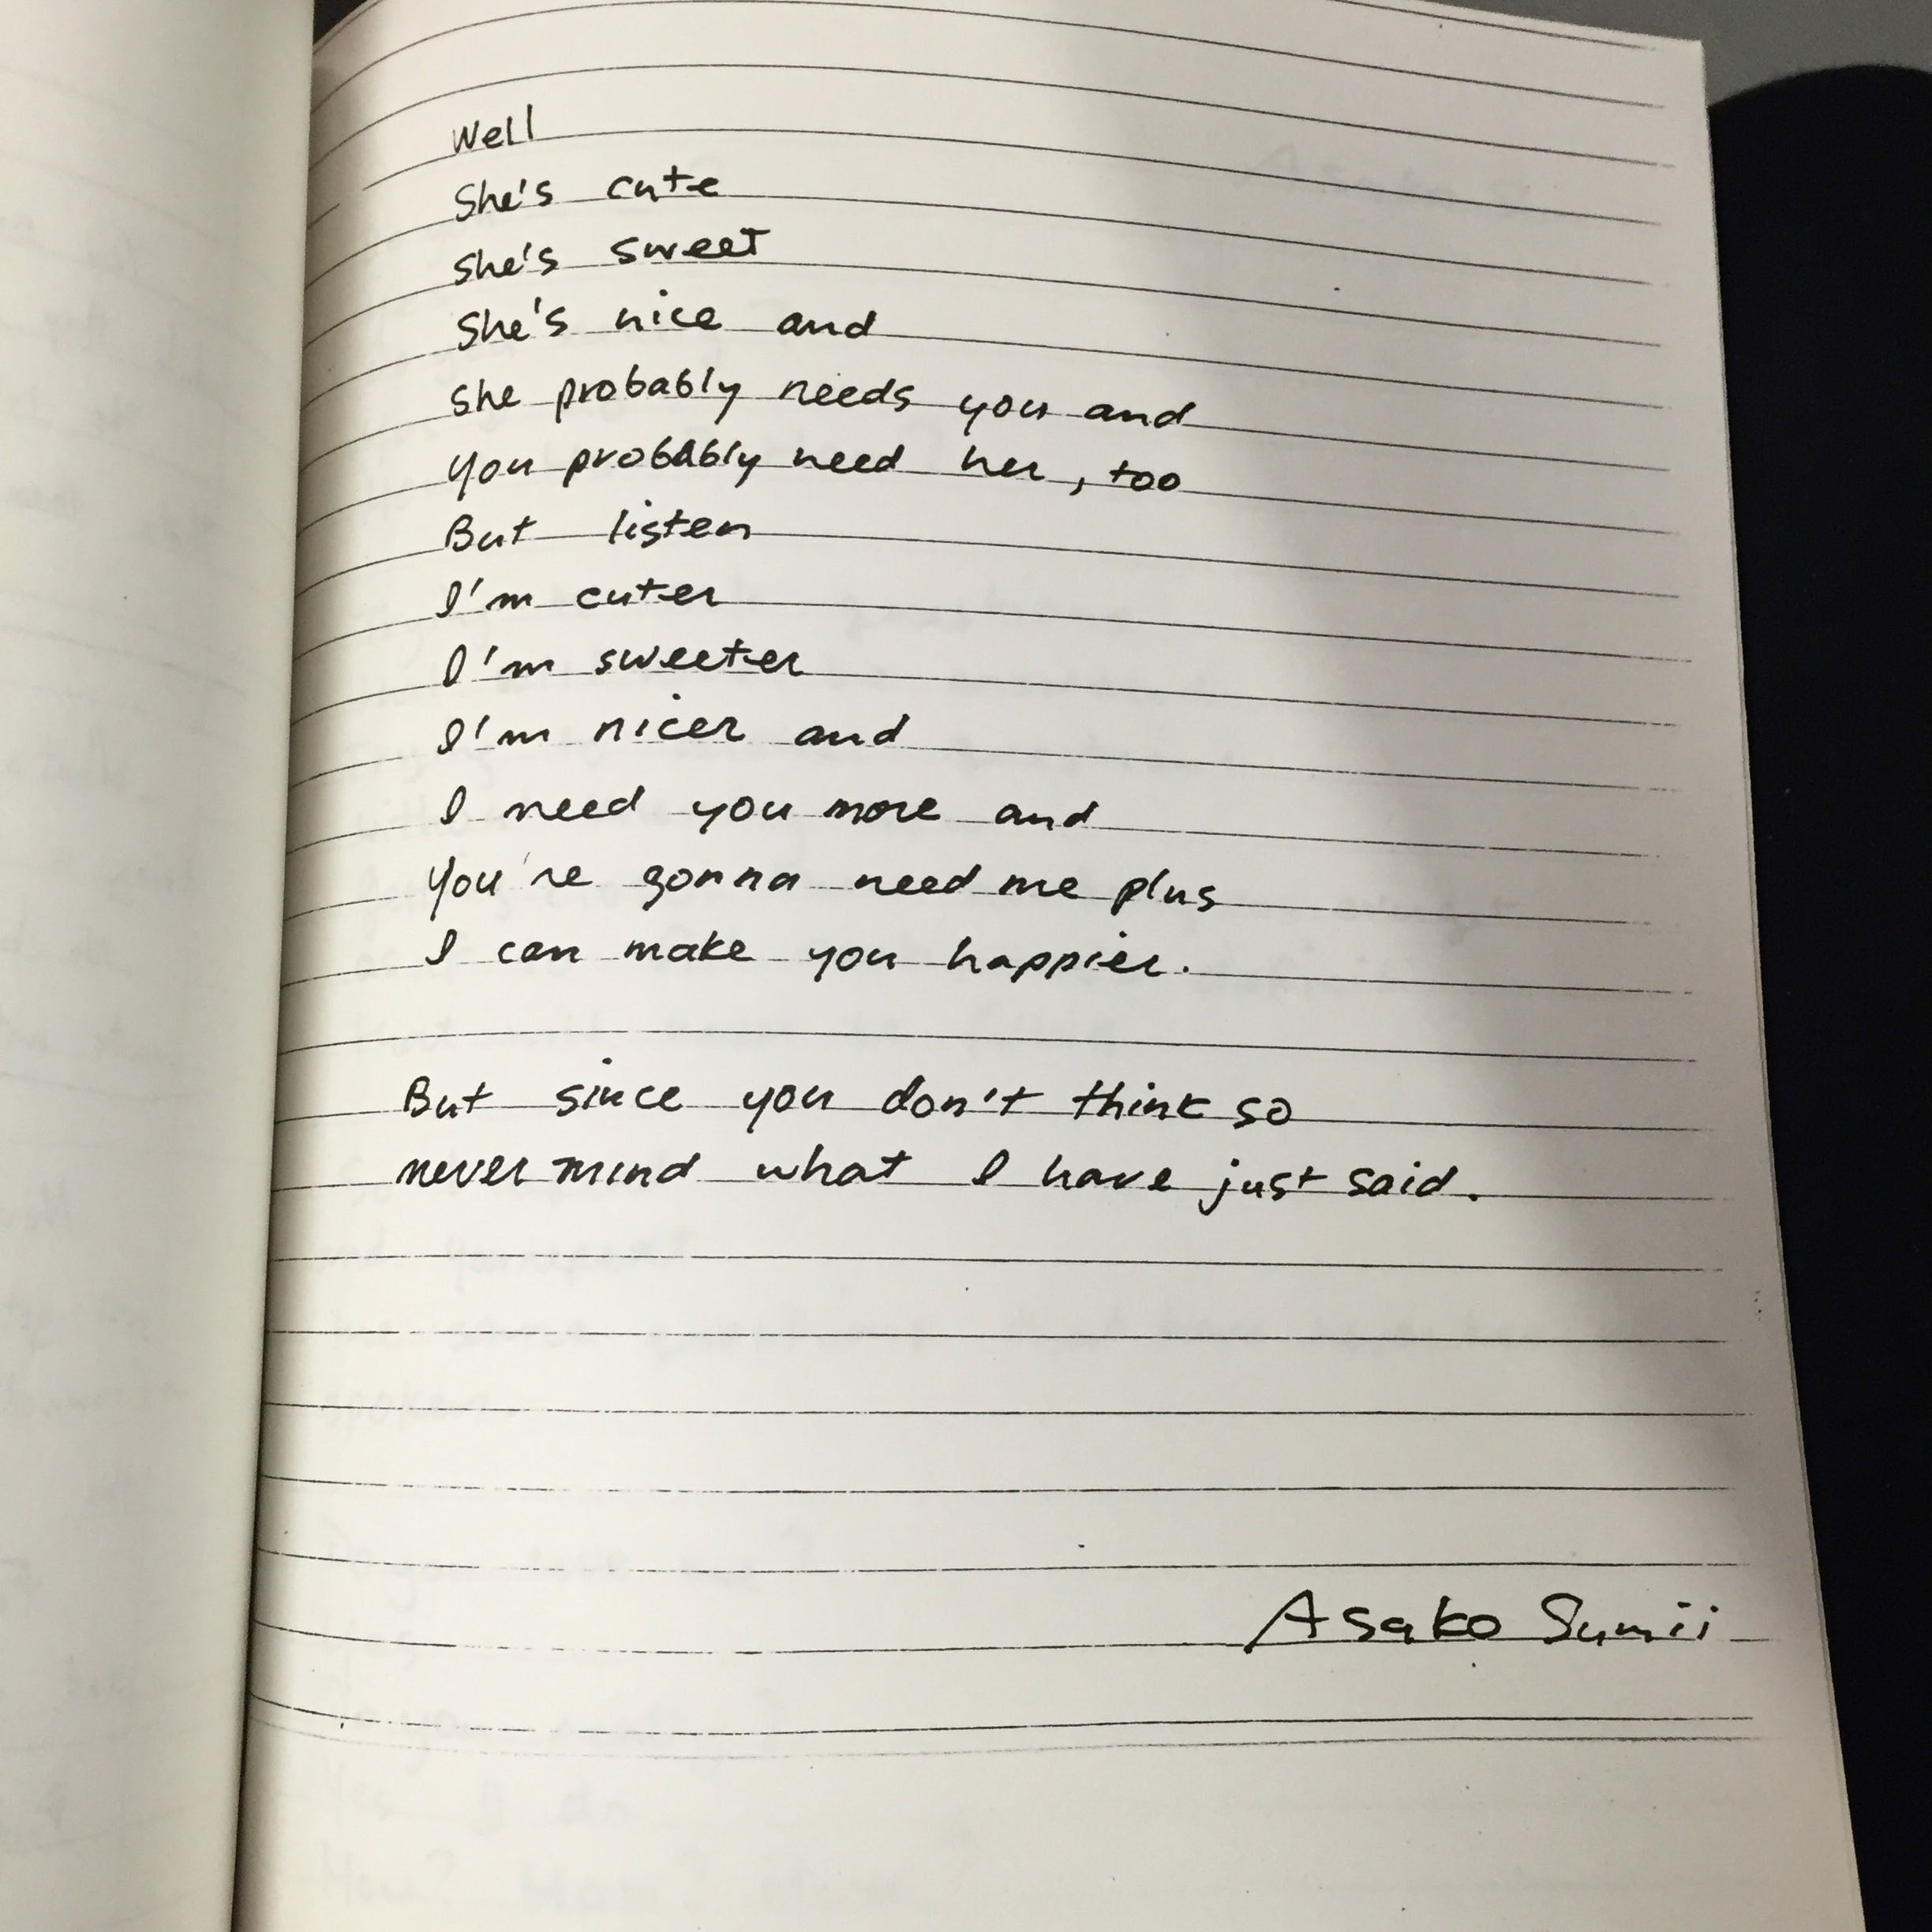 Well
She's cute
She's sweet
She's nice and
she probably needs you and
you probably need her, too
But listen
I'm cuter
I'm sweeter
I'm nicer and
I need you more and
You're gonna need me plus
I can make you happier.
But since you don't think so
never mind what I have just said.
Asako Sumii